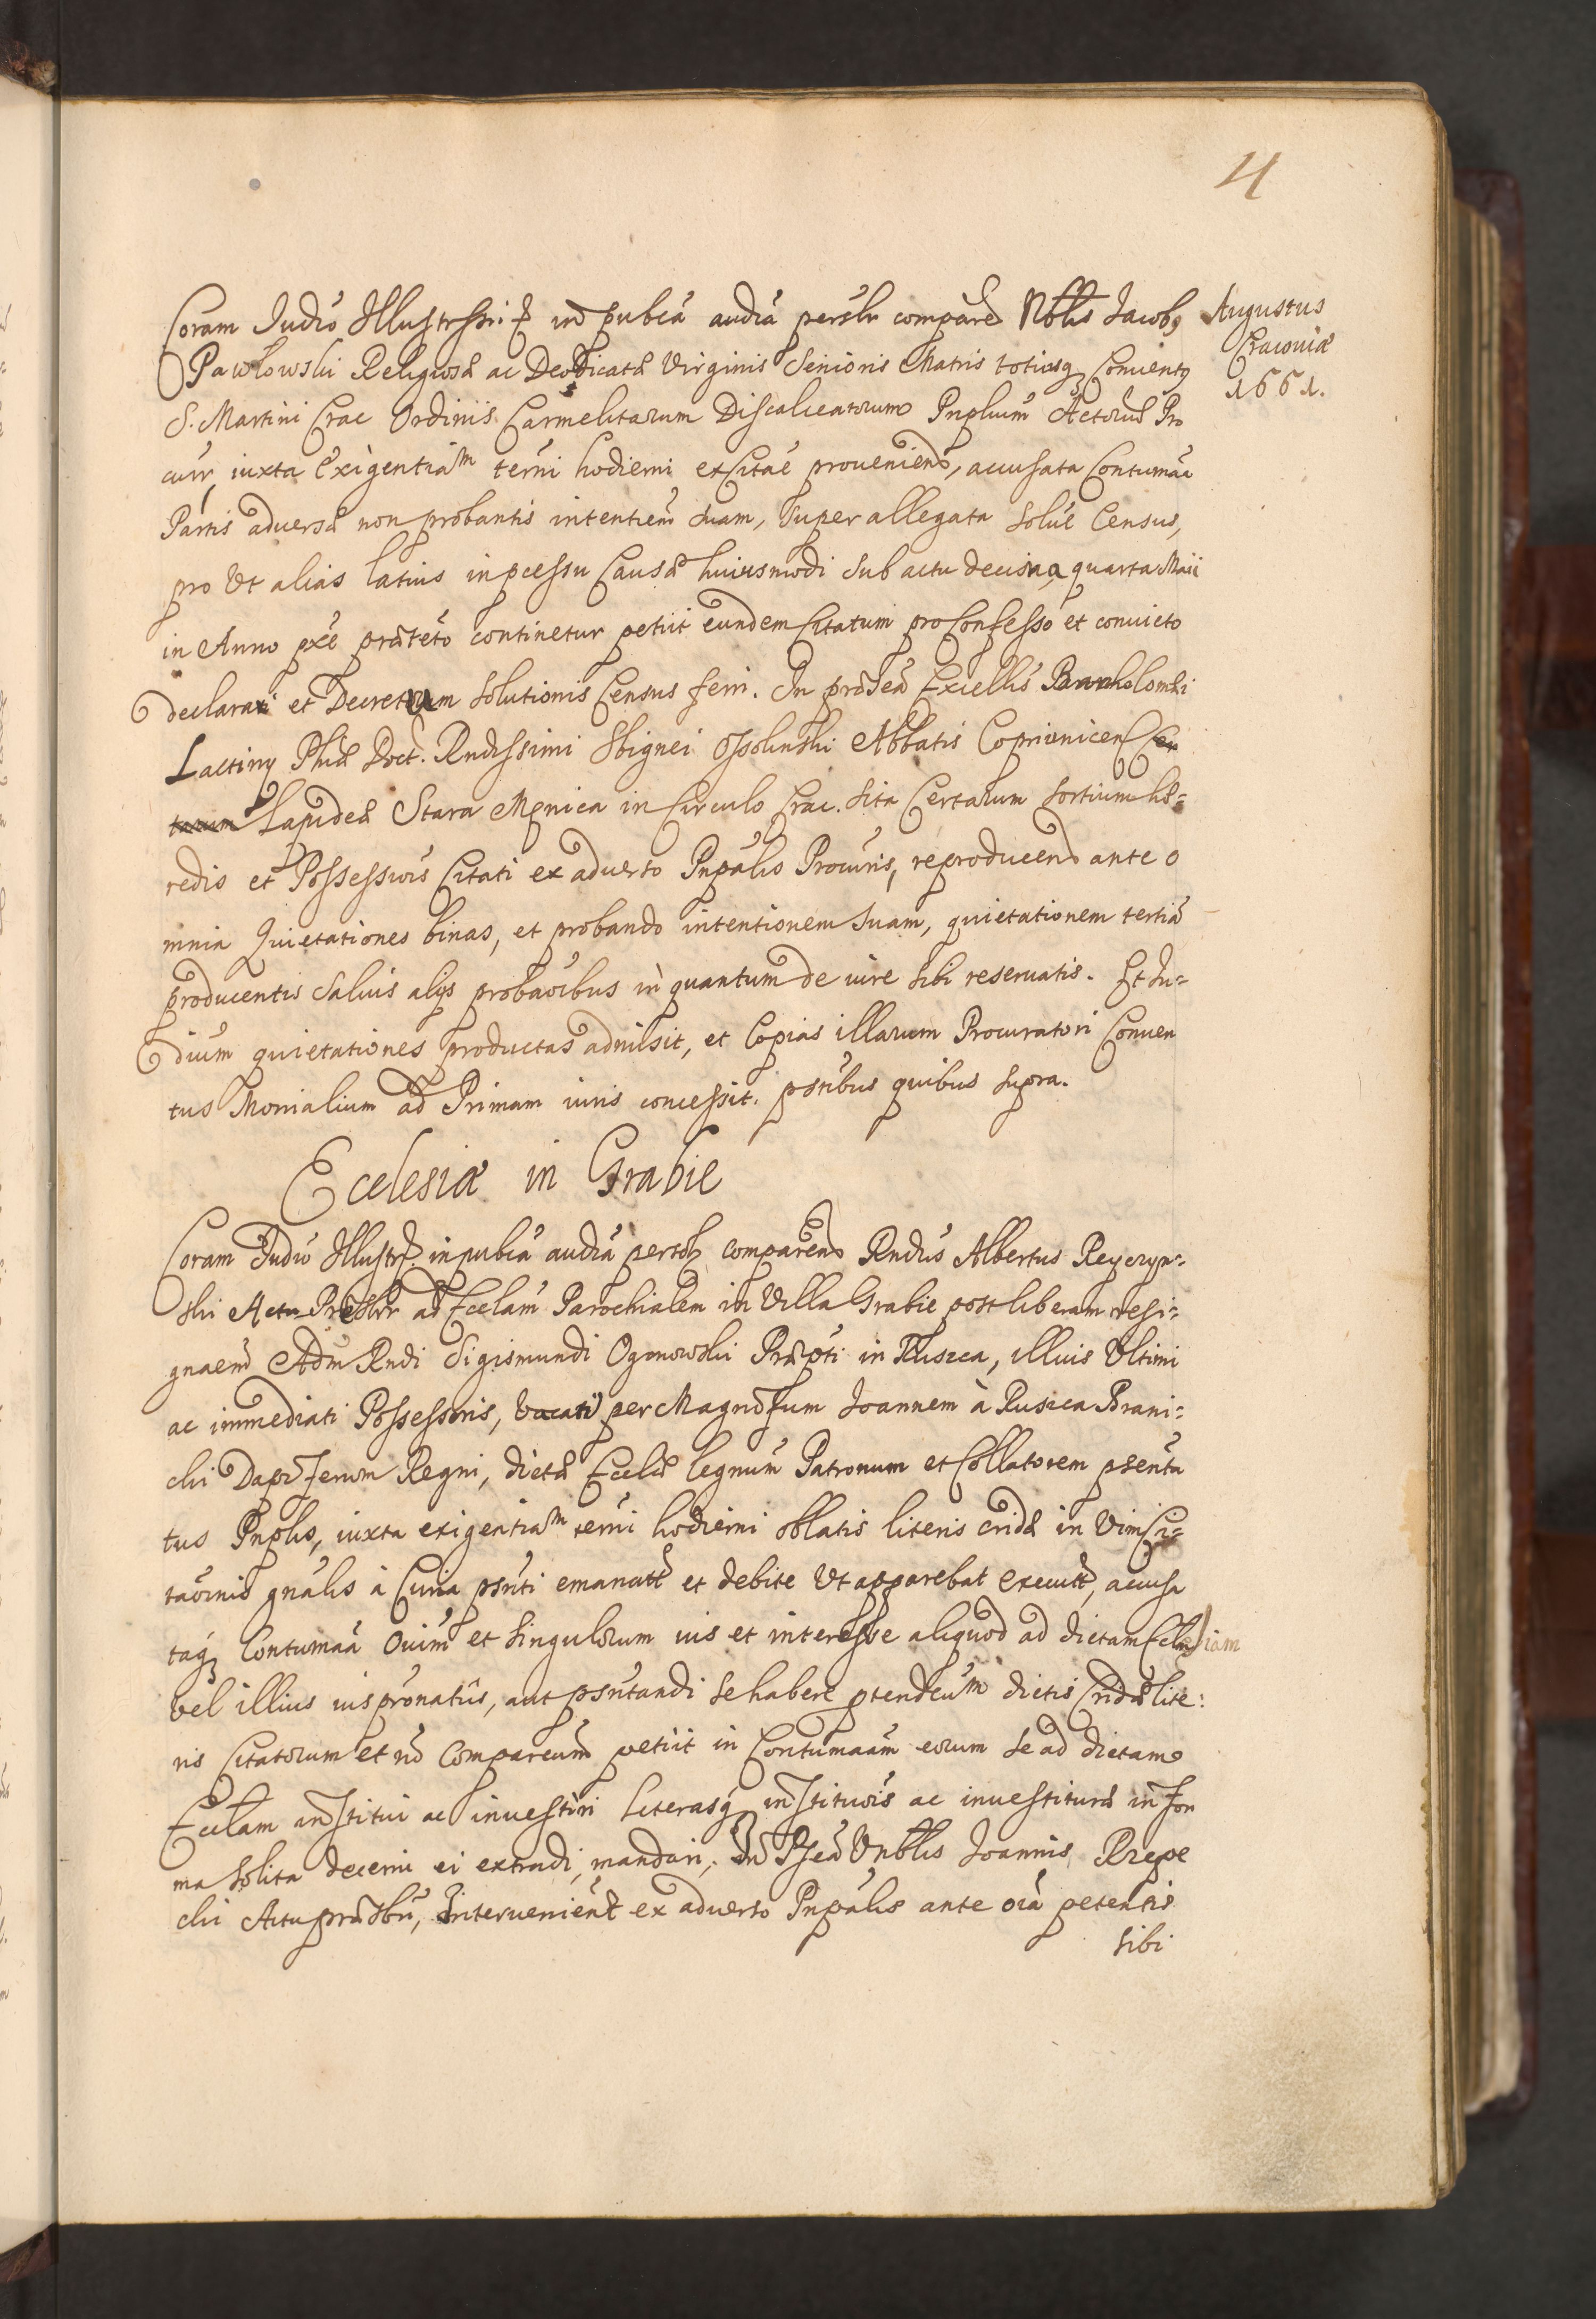 4
Augustus
Cracoviæ
1661.
Coram Judio Illustrssi: et in publca audia persolr comparen Nblis Jacobq
Pawlowski Religiosæ ac Deo Dicatæ Virginis Senioris Matris totiusq Conventq
S. Martini Crac Ordinis Carmelitarum Discalceatorum Pnplium Actorum Pro
curr, iuxta Exigentiam termi hodierni ex Citae provenien, accusata Contumaa
Partis adversæ non probantis intentiem suam, super allegata solue Census,
pro Ut alias latius in pcessu Causæ huiusmodi sub actu decima quarta Maii
in Anno pxe præteto continetur petiit eundem Citatum pro Confesso et convicto
declarari et Decretum solutionis Census ferri. In præsea Excellis Bartholomæi
Lactinq Phiæ Doct. Rndissimi Sbignei Ossolinski Abbatis Coprivnicen
Lapideæ Stara Mynica in Circulo Crac. sita Certarum sortium hæ=
redis et Possessoris Citati ex adverso Pnpalis Procuris, reproducen ante o
mnia Quietationes binas, et probando intentionem suam, quietationem tertiā
producentis salvis alys probaoibus in quantum de iure sibi reservatis. Et Ju=
dium quietationes productas admisit, et Copias illarum Procuratori Conven
tus Monialium ad Primam iuris concessit. pntibus quibus supra.
Ecclesiæ in Grabie
Coram Judio Illustri et in publca audia persolr comparen Rndus Albertus Reyczyn=
ski Actu Presbr ad Ecclam Parochialem in Villa Grabie post liberam resi=
gnaem Adm Rndi Sigismundi Ogonowski Præpti in Ruszca, illius Ultimi
ac immediati Possessoris, vacatē per Magndum Joannem à Ruszca Brani=
cki Dapiferum Regni, dictæ Ecclæ legnum Patronum et Collatorem psenta
tus Pnplis, iuxta exigentiam termi hodierni oblatis literis cridæ in Vim Ci=
taōinis gnalis à Curia psnti emanatt et debite Ut apparebat executt, accusa
taq Contumaa Ouim et singulorum ius et interesse aliquod ad dictam Ecclesiam
vel illius ius pronatus, aut psntandi se habere ptendeum dictis Cridæ lite:
ris Citatorum et no Compareum petiit in Contumaam eorum se ad dictam
Ecclam institui ac investiri literasq institiois ac investituræ in for
ma solita decerni ei extradi, mandari, In Psea Vnblis Joannis Rzepe
cki Actu præsbri, Intervenient ex adverso Pnpalis ante oia petentis
sibi